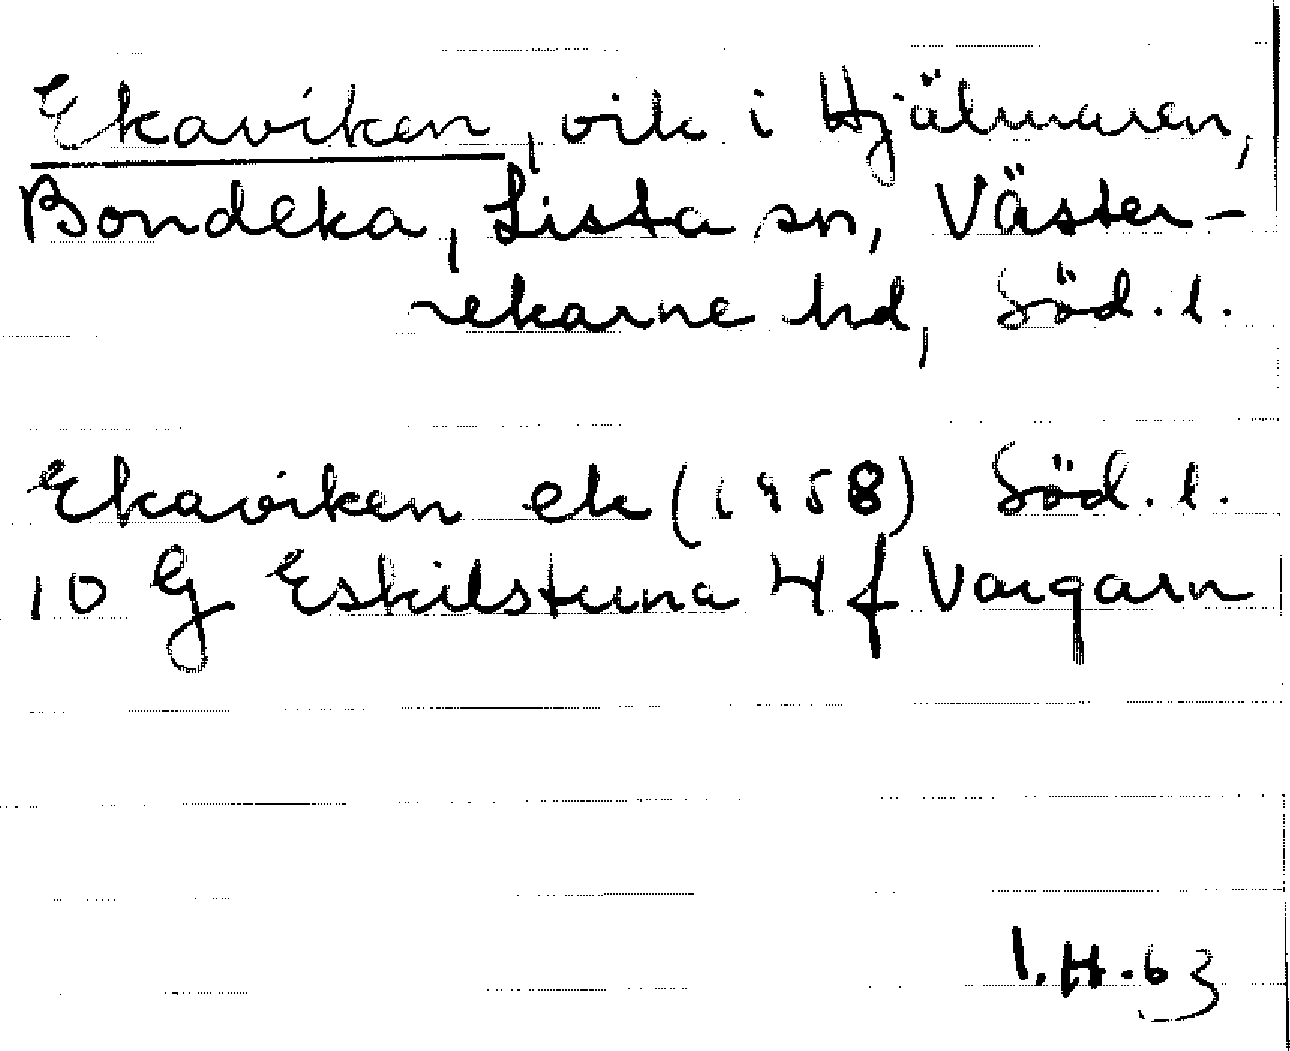 Ekaviken, vik i Hjälmaren,
Bondeka, Lista sn, Väster-
rekarne hd, Söd. l.
Ekaviken ek (1958) Söd. l.
10 G Eskilstuna 4 f Vargarn
I. H. 63